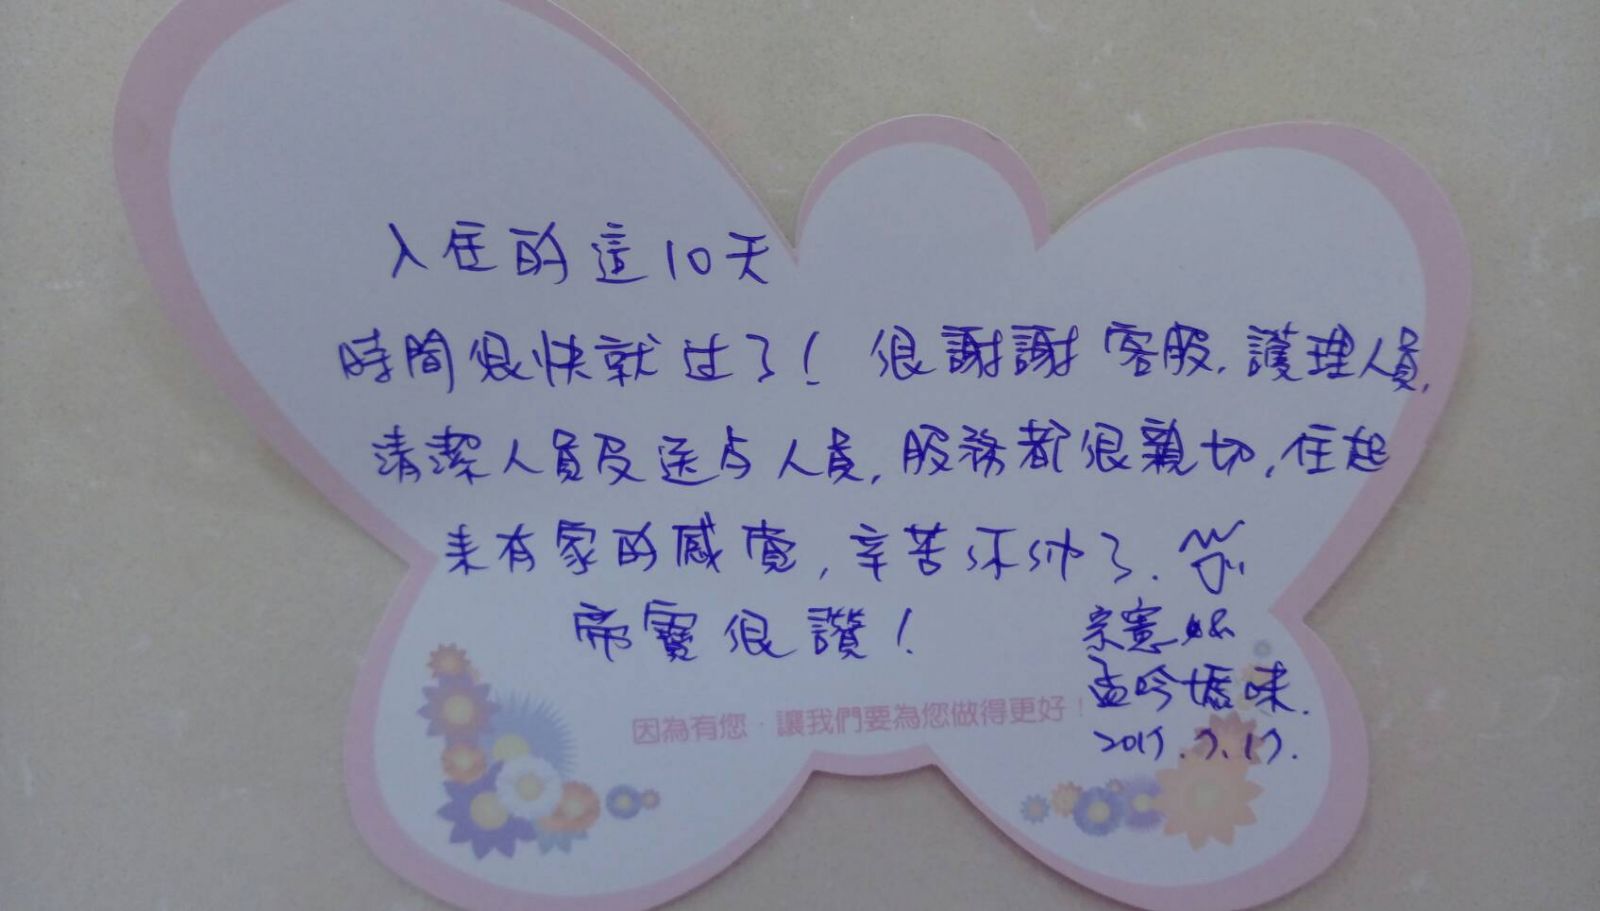 入住的這10天
時間很快就过了！很謝謝客服,護理人員,
清潔人員及送点人員,服務都很親切,住起
来有家的感覺,辛苦你們了.
帝寶很讚！
宗憲&
孟吟媽咪.
因為有您·讓我們要為您做得更好！